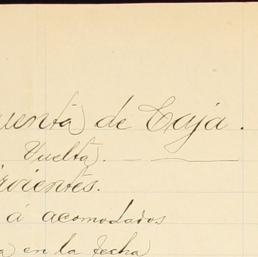 uenta de Caja.
Vuelta).
rvientes.
á acomodados
a) en la fecha